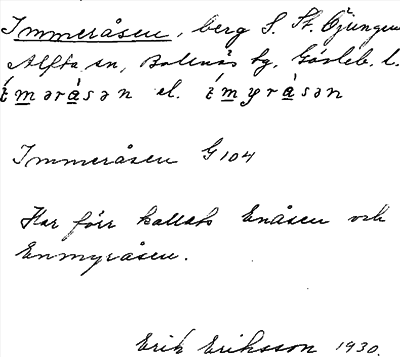 Immeråsen, berg S. St. Öjungen
Alfta sn, Bollnäs tg, Gävleb. l.
ím̲ərà̲sən el. ím̲yrà̲sən
Immeråsen G 104
Har förr kallats Enåsen och
Enmyråsen.
Erik Eriksson 1930.